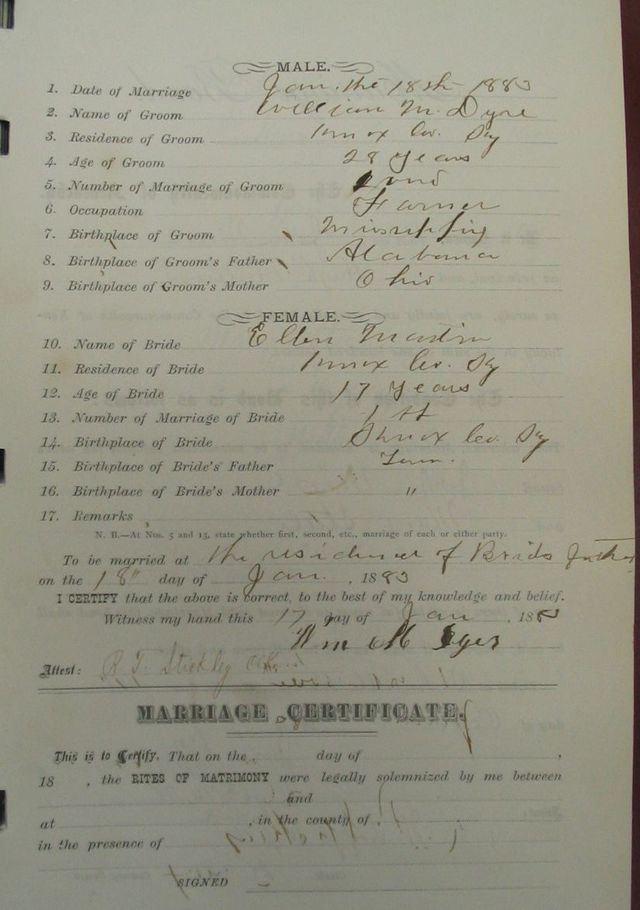 MALE.
1. Date of Marriage Jan. the 18th 1883
2. Name of Groom William M. Dyre
3. Residence of Groom Knox Co. Ky
4. Age of Groom 28 Years
5. Number of Marriage of Groom 2nd
6. Occupation Farmer
7. Birthplace of Groom
8. Birthplace of Groom's Father Alabama
9. Birthplace of Groom's Mother Ohio
FEMALE.
10. Name of Bride Ellen
11. Residence of Bride Knox Co. Ky
12. Age of Bride 17 Years
13. Number of Marriage of Bride 1st
14. Birthplace of Bride Knox Co. Ky
15. Birthplace of Bride's Father Tenn.
16. Birthplace of Bride's Mother "
17. Remarks
N. B.—At Nos. 5 and 13, state whether first, second, etc., marriage of each or either party.
To be married at the residence of Brids father
on the 18" day of Jan. , 1883
I CERTIFY that the above is correct, to the best of my knowledge and belief.
Witness my hand this 17 day of Jan , 188
Wm M Dyer
Attest:
MARRIAGE CERTIFICATE.
This is to Certify, That on the day of ,
18 , the RITES OF MATRIMONY were legally solemnized by me between
and
at , in the county of ,
in the presence of
SIGNED